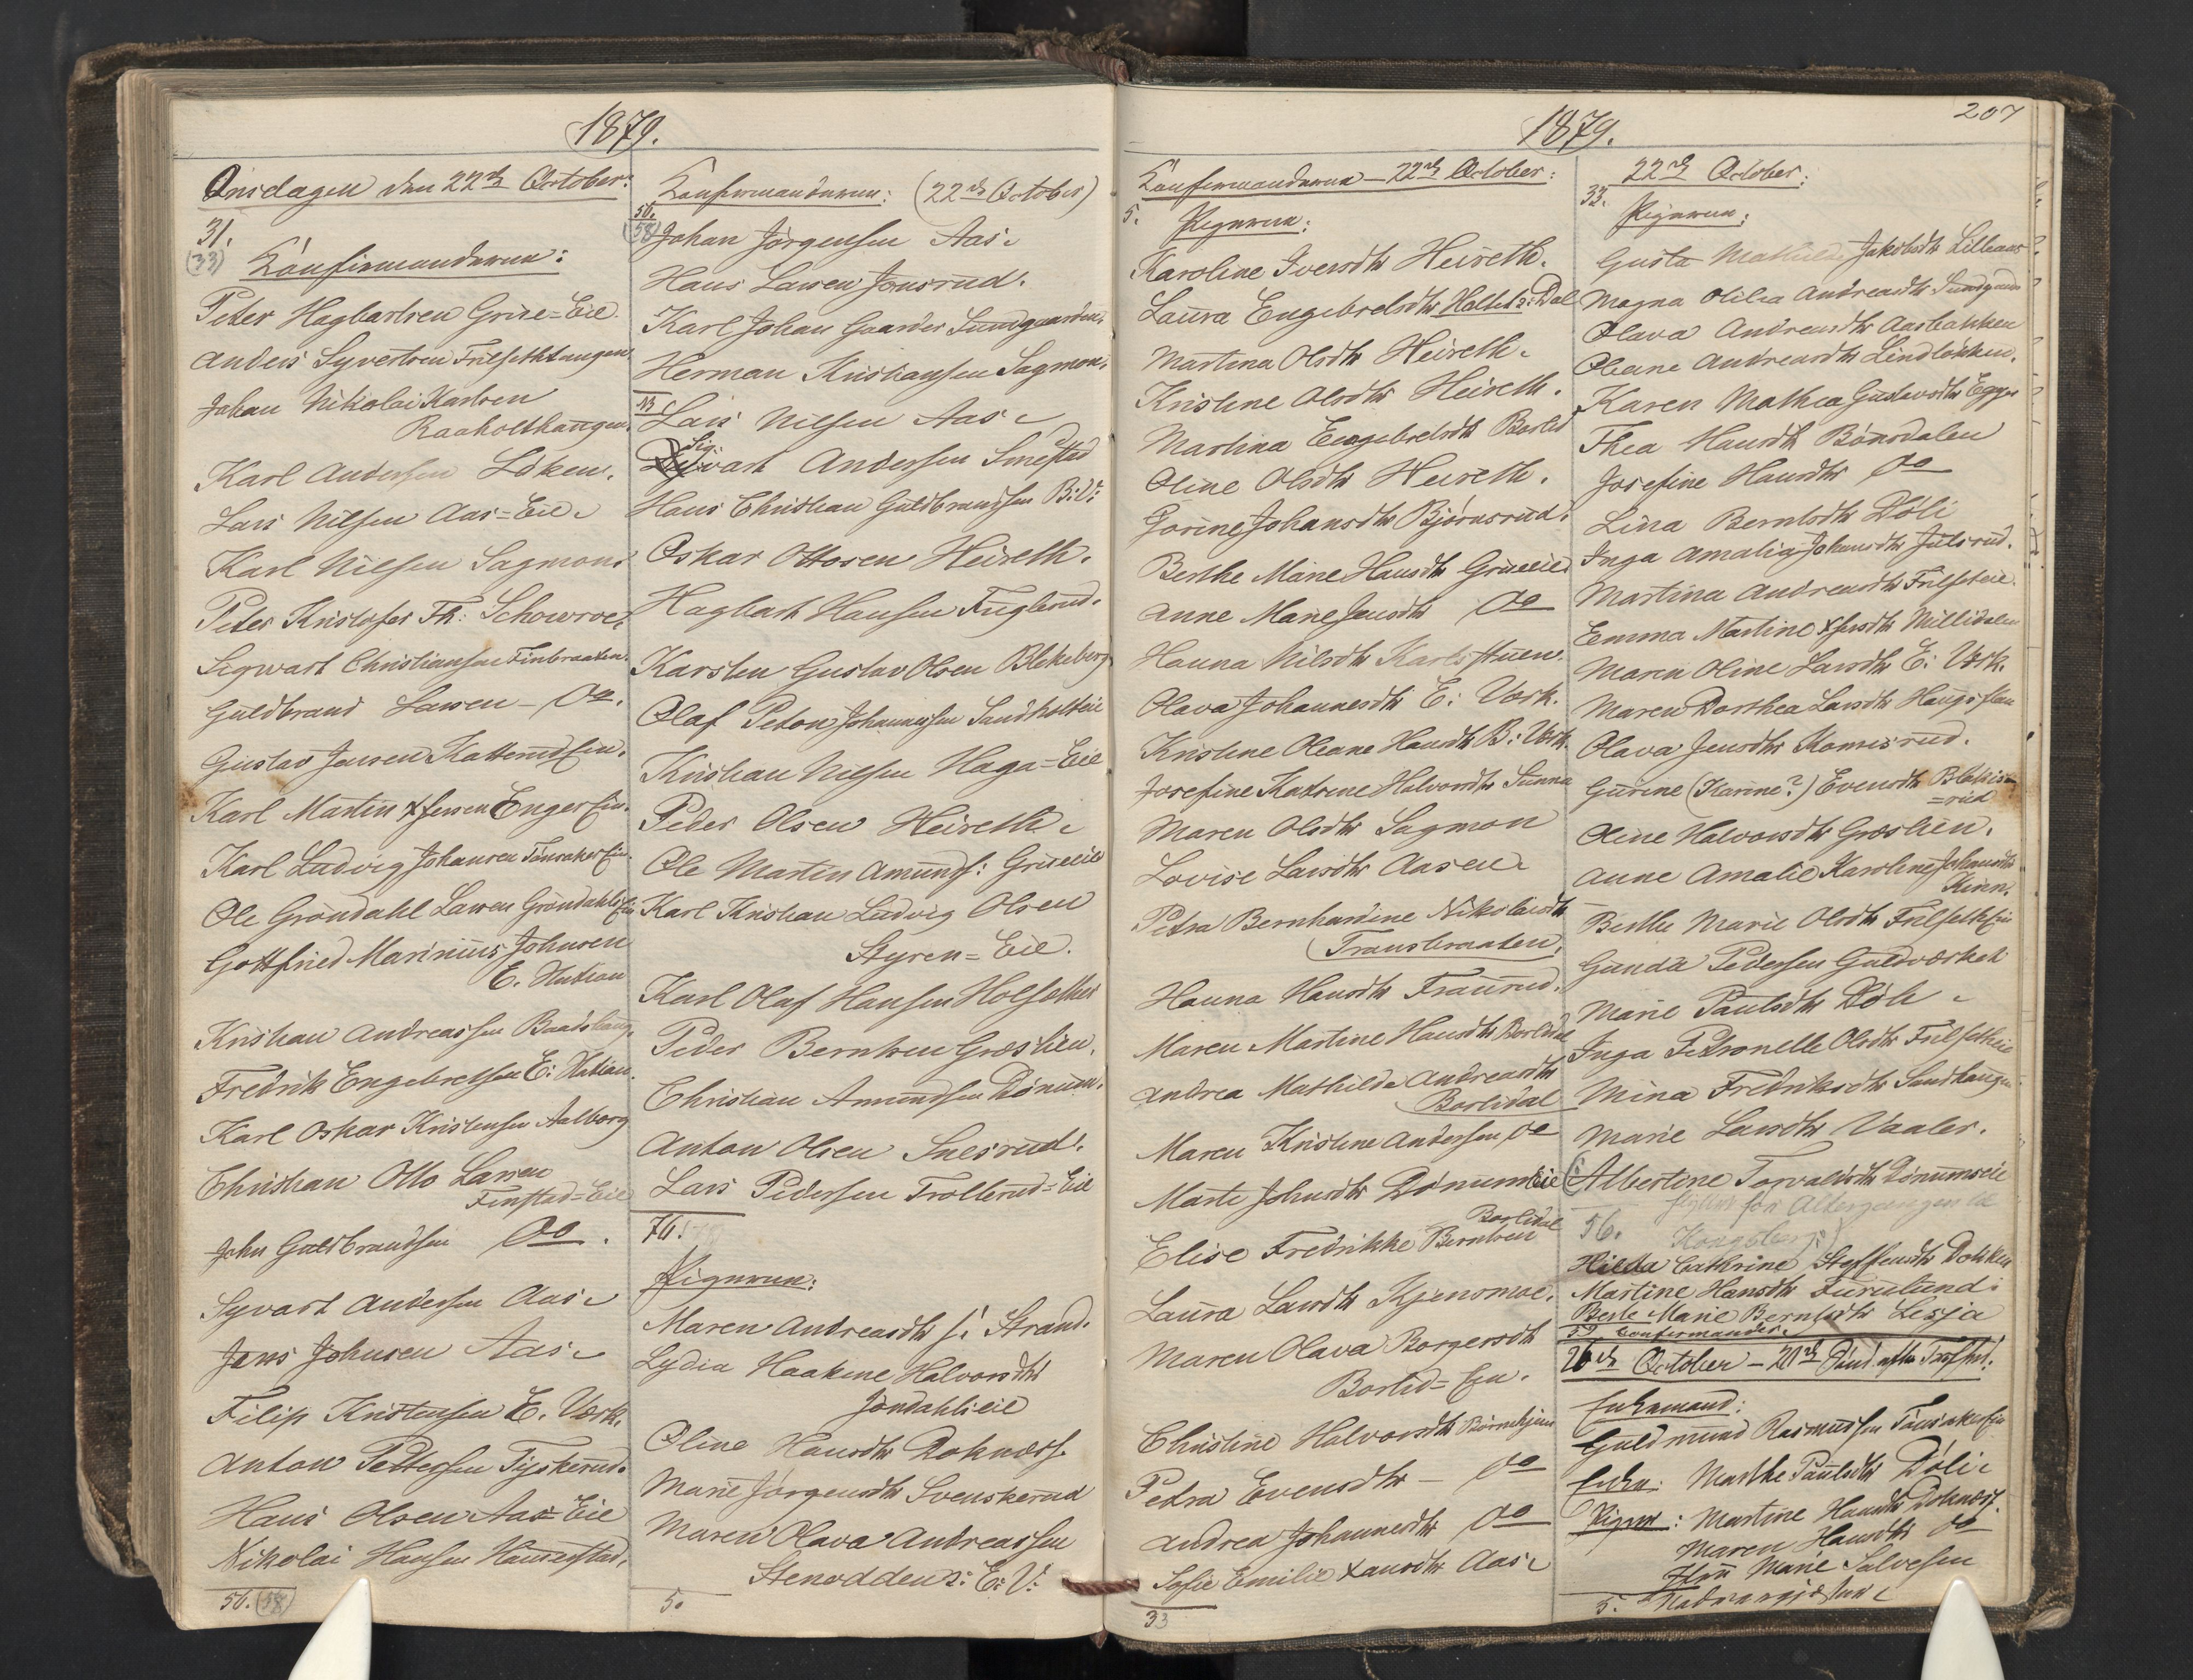 1879.
Onsdagen den 22de October:
31.
(33) Konfirmanderne:
Peter Hagbartsen Grüe=Eie.
Anders Syvertsen Fulsethhaugen
Johan Nikolai Karlsen
Raaholthaugen.
Karl Andersen Löken.
Lars Nilsen Aas=Eie.
Karl Nilsen Sagmoen
Peter Kristofer Th: Schowroe.
Sigwart Christiansen Finbraaten.
Guldbrand Larsen - Do.
Gustav Jensen Katterud Ein.
Karl Martin Jensen Enger Ein.
Karl Ludvig Johansen Tönsaker Ein.
Ole Gröndahl Larsen Gröndahls Ein
Gottfried Marinius Johnsen
E. Station
Kristian Andreassen Baadshaug.
Fredrik Engebretsen E: Station.
Karl Oskar Kristensen Aalborg
Christian Otto Larsen
Finstad=Eie
John Guldbrandsen Do.
Syvart Andersen Aas.
Jens Johnsen Aas.
Filip Kristensen E. Værk.
Anton Pettersen Tyskerud.
Hans Olsen Aas Eie
Nikolai Hansen Hammerstad.
56. (58)
Konfirmanderne: (22de October)
56.
(58) Johan Jörgensen Aas.
Hans Larsen Jönsrud.
Karl Johan Gaarder Sundgaarden.
Herman Kristiansen Sagmoen.
Lars Nilsen Aas.
Sig
vart Andersen Smestad
Hans Christian Guldbrandsen B:V:
Oskar Ottosen Heiseth.
Hagbart Hansen Fuglerud.
Karsten Gustav Olsen Blekeberg
Olaf Peton Johannessen Sandholteie
Kristian Nilsen Haga=Eie
Peder Olsen Heiseth.
Ole Martin Amunds: Grüeeie
Karl Kristian Ludvig Olsen
Styren=Eie.
Karl Olaf Hansen Holsæther
Peder Berntsen Græslien.
Christian Amundsen Dönum.
Anton Olsen Snesrud.
Lars Pedersen Trollerud=Eie
76.
Pigerne:
Maren Andreasdtr s: Strand.
Lydia Haakine Halvorsdtr
Jöndahl Eie
Oline Hansdtr Dokness.
Marie Jörgensdtr Svenskerud
Maren Olava Andreassen
Stenodden s: E: V:
5.
1879.
Konfirmanderne - 22de October:
5. Pigerne:
Karoline Iversdtr Heiseth.
Laura Engebretsdtr Holtet s: Dal
Martina Olsdtr Heiseth.
Kristine Olsdtr Heiseth.
Martina Engebretsdtr Borlid
Oline Olsdtr Heiseth.
Jorine Johansdtr Björnsrud.
Berthe Marie Hansdtr Grüeeie.
Anne Marie Jensdtr Do
Hanna Nilsdtr Karlsstuen.
Olava Johannesdtr E: Værk.
Kristine Oleane Hansdtr B: Værk.
Josefine Katrine Halvorsdtr Sunna
Maren Olsdtr Sagmoen
Lovise Larsdtr Aasen.
Petra Bernhardine Nikolaisdtr
Transbraaten.
Hanna Hansdtr Fraunrud.
Maren Martine Hansdtr Borlidal
Andrea Mathilde Andreasdtr
Borlidal
Maren Kristine Andersen Do
Marte Johnsdtr Dönum Eie
Borlidal
Elise Fredrikke Berntsen
Laura Larsdtr Kjensmoe.
Maren Olava Borgersdtr
Borlid=Ein.
Christine Halvorsdtr Börnehjem
Petra Evensdtr - Do
Andrea Johannesdtr Do
Sofie Emilie Hansdtr Aas.
33
207
22de October:
33. Pigerne:
Gusta Mathilde Jakobsdtr Lilleaas
Magna Otilia Andreasdtr Sundgaard
Olava Andreasdtr Aasbakken
Oleane Andreasdtr Lindlökken.
Karen Mathea Gustavsdtr Egge
Thea Hansdtr Bönsdalen
Josefine Hansdtr Do
Lina Berntsdtr Döli
Inga Amalia Johansdtr Julsrud.
Martina Andreasdtr Fulseteie.
Emma Martine Jensdtr Nillidalen
Maren Oline Larsdtr E: Værk.
Maren Dorthea Larsdtr Haugsflaa
Olava Jensdtr Komisrud.
Gurine (Karine?) Evensdtr Blekis
=rud
Oline Halvorsdtr Græslien.
Anne Amalie Karoline Johansdtr
Kinn.
Berthe Marie Olsdtr Fulseth Ein
Gunda Pedersen Guldværket
Marie Paulsdtr Döli.
Inga Petronelle Olsdtr Fulsetheie
Mina Fredriksdtr Sandhaugen
Marie Larsdtr Vaaler.
(Albertine Torvaldsdtr Dönumseie
för Altergangen til
56. Kongsberg)
Hilda Cathrine Steffensdtr Dokken
Martine Hansdtr Furulund:
Berte Marie Berntsdtr Lesja
59 Confirmander.
26de October - 20de Sönd. efter Trefold.
Enkemand:
Guldmund Rasmussen Tönsaker Ein
Enke: Marthe Paulsdtr Döli.
Piger: Martine Hansdtr Dokness.
Maren Hansdtr Do
Marie Salvesen
5.